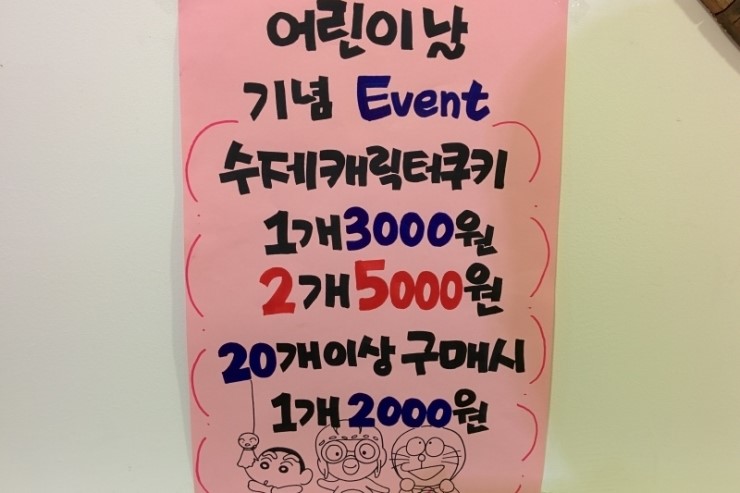 어린이날
기념 Event
수제캐릭터쿠키
1개3000원
2개5000원
20개이상 구매시
1개2000원